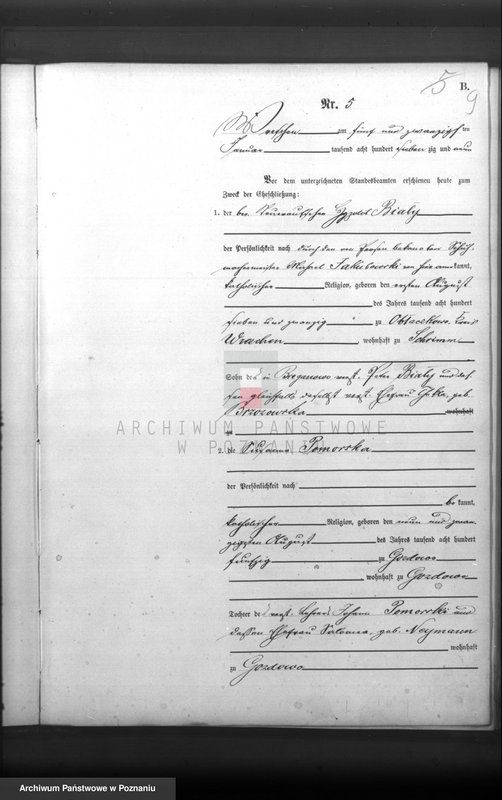 5
B.
9
Nr. 5
Wreschen am fünf und zwanzigsten
Januar tausend acht hundert sieben zig und neun
Vor dem unterzeichneten Standesbeamten erschienen heute zum
Zweck der Eheschließung:
1. der Bialy
der Persönlichkeit nach durch den von Person bekannten Schuh-
machermeister Michael Jakubowski von hier anerkannt,
katholischer Religion, geboren den ersten August
des Jahres tausend acht hundert
sieben und zwanzig zu Obłaczkowo Kreis
Wreschen, wohnhaft zu Schrimm
Sohn des in verst. Peter Bialy und des-
sen gleichfalls daselbst verst. Ehefrau geb.
Brzozowska wohnhaft
zu
ARCHIWUM PAŃSTWOWE
W POZNANIU
2. die Susanna Pomorska
der Persönlichkeit nach
be kannt,
katholischer Religion, geboren den neun und zwan-
zigsten August des Jahres tausend acht hundert
fünfzig zu Gozdowo
, wohnhaft zu Gozdowo
Tochter des verst. Lehrers Johann Pomorski und
dessen Ehefrau Salomea, geb. Neymann
wohnhaft
zu Gozdowo
Archiwum Państwowe w Poznaniu